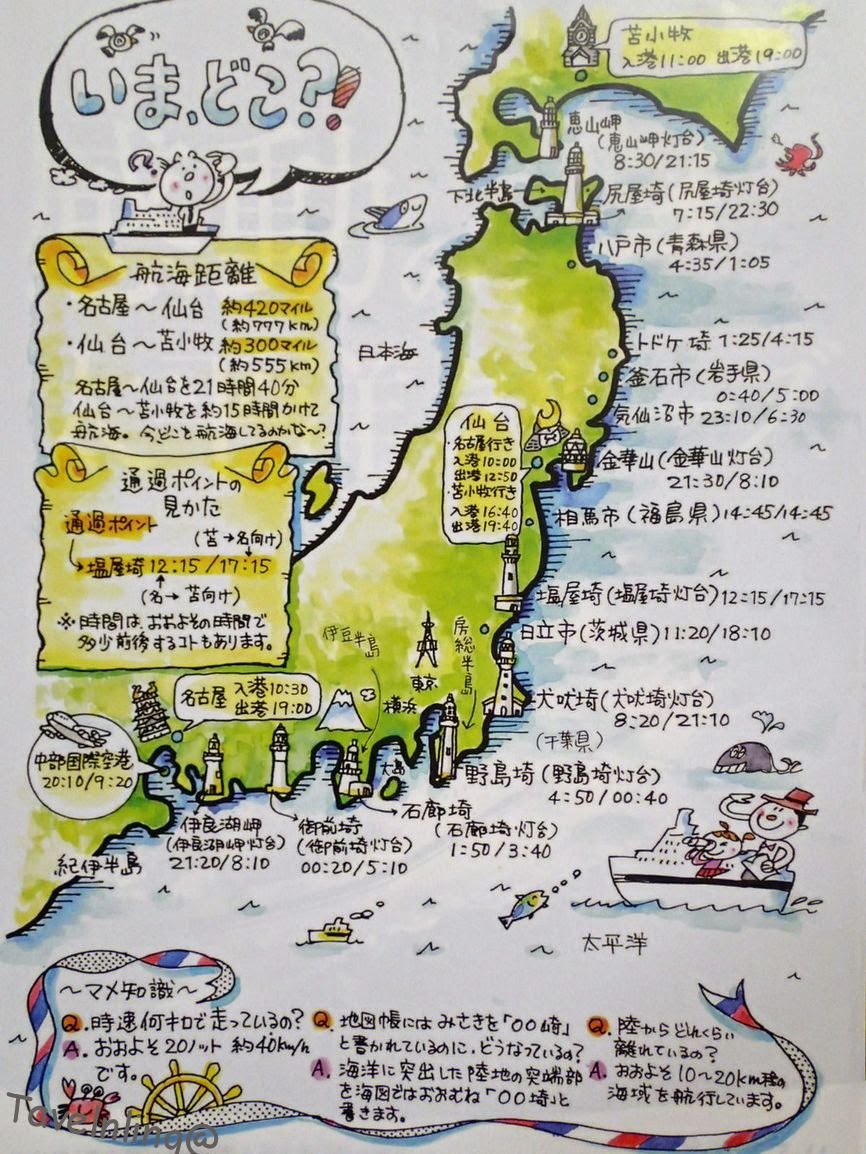 いま、どこ?!
苫小牧
入港11:00 出港19:00
恵山岬
(恵山岬灯台)
8:30/21:15
下北半島
尻屋埼(尻屋埼灯台)
7:15/22:30
八戸市(青森県)
4:35/1:05
航海距離
・名古屋〜仙台 約420マイル
(約777km)
・仙台〜苫小牧 約300マイル
(約555km)
名古屋〜仙台を21時間40分
仙台〜苫小牧を約15時間かけて
航海。今どこを航海してるのかな〜?
日本海
トドケ埼 1:25/4:15
釜石市(岩手県)
0:40/5:00
気仙沼市 23:10/6:30
仙台
・名古屋行き
入港10:00
出港12:50
・苫小牧行き
入港16:40
出港19:40
金華山(金華山灯台)
21:30/8:10
相馬市(福島県)14:45/14:45
通過ポイントの
見かた
通過ポイント
(苫→名向け)
塩屋埼 12:15/17:15
(名→苫向け)
※時間は、おおよその時間で
多少前後するコトもあります。
塩屋埼(塩屋埼灯台)12:15/17:15
日立市(茨城県)11:20/18:10
伊豆半島
東京
房総半島
横浜
犬吠埼(犬吠埼灯台)
8:20/21:10
(千葉県)
名古屋 入港10:30
出港19:00
中部国際空港
20:10/9:20
大島
野島埼(野島埼灯台)
4:50/00:40
石廊埼
(石廊埼灯台)
1:50/3:40
伊良湖岬
(伊良湖岬灯台)
21:20/8:10
御前埼
(御前埼灯台)
00:20/5:10
紀伊半島
太平洋
〜マメ知識〜
Q. 時速何キロで走っているの?
A. おおよそ20ノット 約40km/h
です。
Q. 地図帳にはみさきを「〇〇崎」
と書かれているのに、どうなっているの?
A. 海洋に突出した陸地の突端部
を海図ではおおむね「〇〇埼」と
書きます。
Q. 陸からどんくらい
離れているの?
A. おおよそ10〜20km程の
海域を航行しています。
TaveInling@